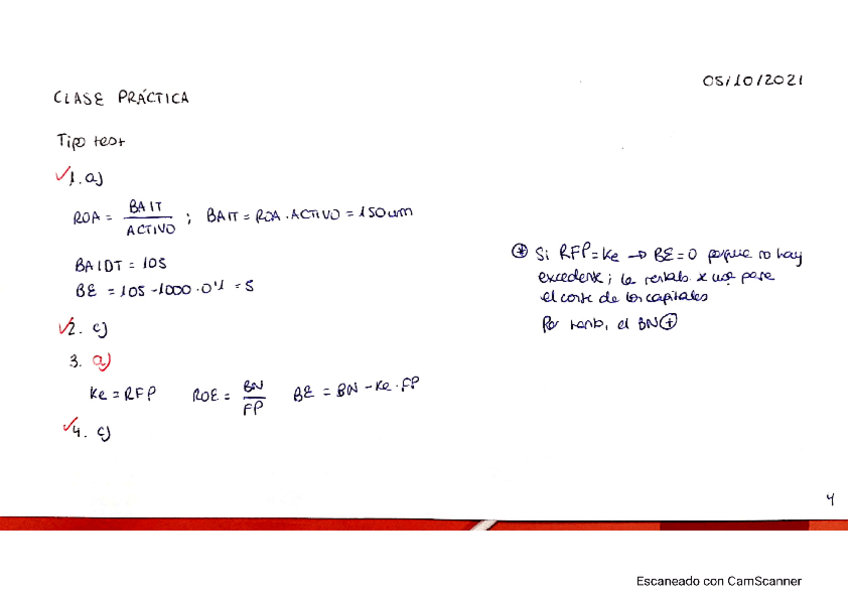 05/10/2021
CLASE PRÁCTICA
Tipo test
1. a)
ROA = BAIT / ACTIVO ; BAIT = ROA · ACTIVO = 150 um
BAIDT = 105
BE = 105 - 1000 · 0'1 = 5
2. c)
3. a)
Ke = RFP ROE = BN / FP BE = BN - Ke · FP
4. c)
* Si RFP = Ke → BE = 0 porque no hay
excedente; la rentab. x
el coste de los capitales
Por tanto, el BN +
4
Escaneado con CamScanner